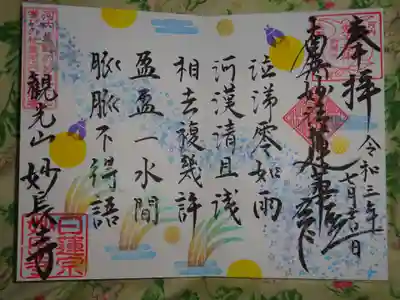 奉拝
令和三年
七月吉日
南無妙法蓮華経
泣涕零如雨
河漢清且浅
相去復幾許
盈盈一水間
脈脈不得語
観光山 妙長寺
日蓮宗